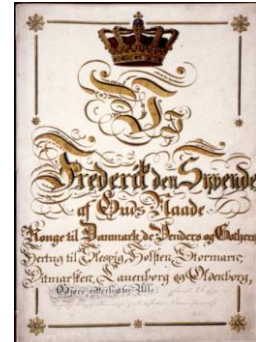 Frederik den Syvende
af Guds Naade
Konge til Danmark, de Venders og Gothers,
Hertug til Slesvig, Holsten, Stormarn,
Ditmarsken, Lauenborg og Oldenborg,
Gjøre vitterligt: At